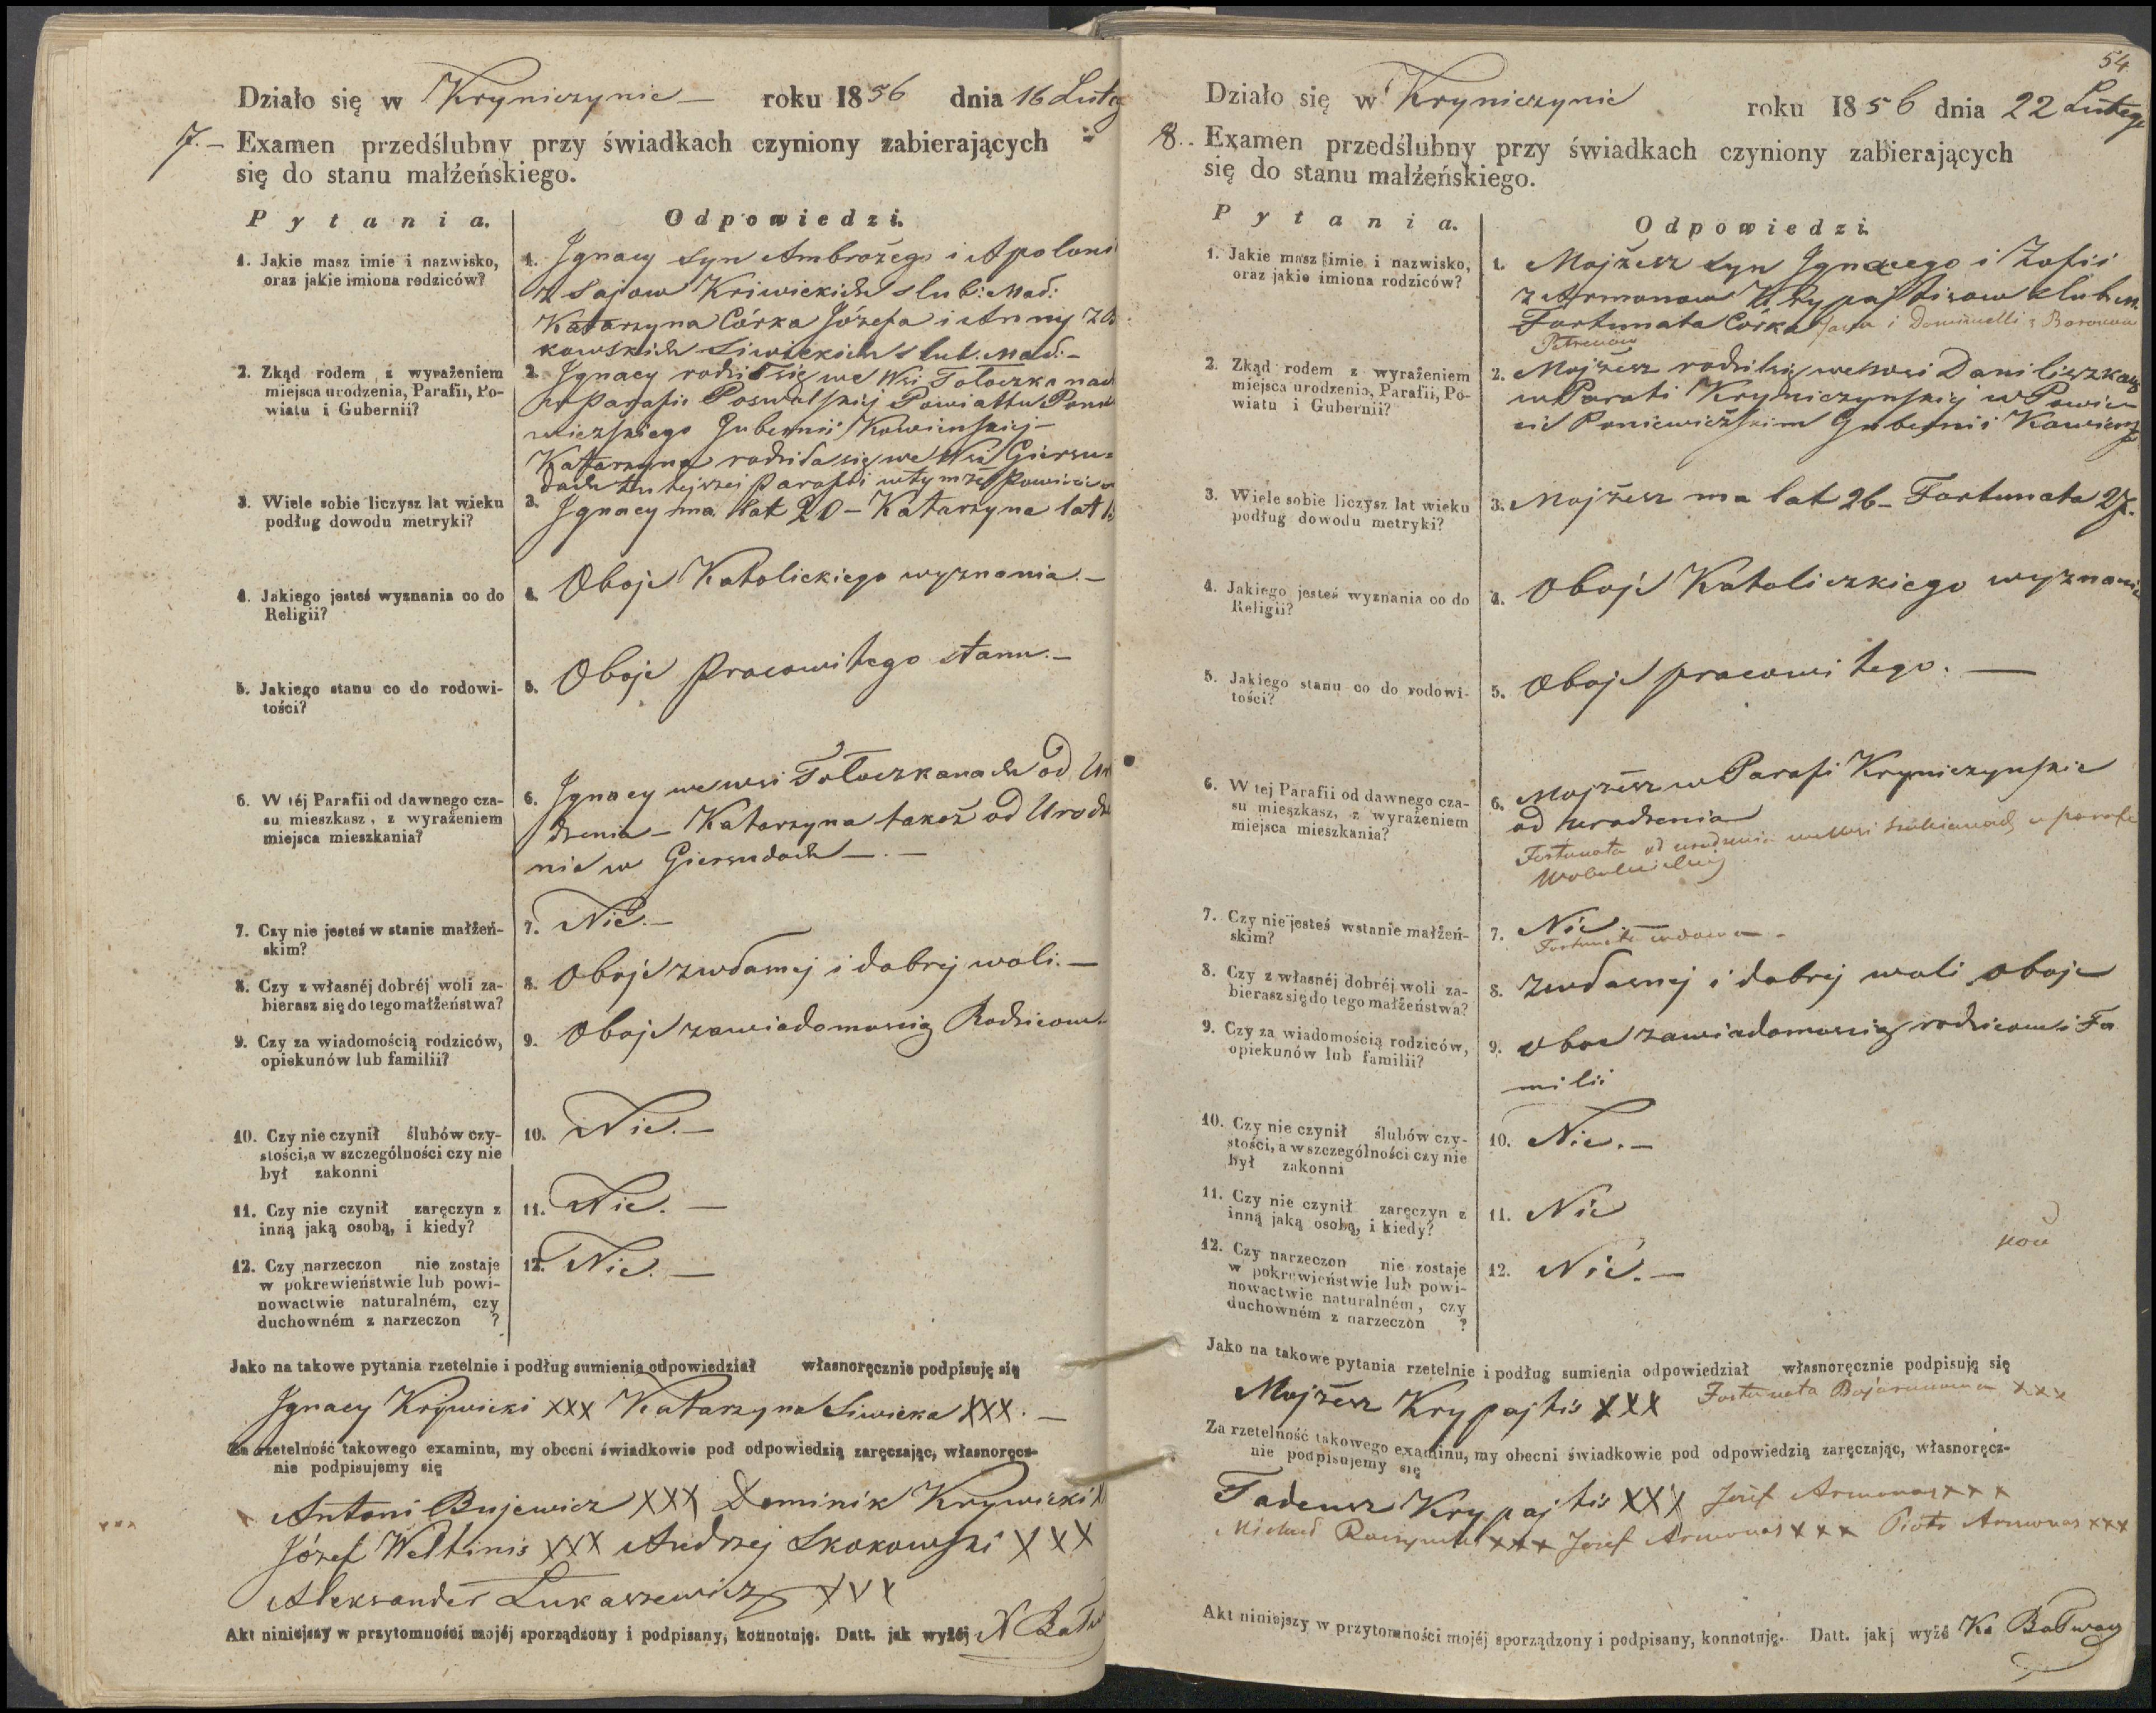 Działo się w Kryniczynie — roku 1856 dnia 16 Luteg
7. — Examen przedślubny przy świadkach czyniony zabierających
się do stanu małżeńskiego.
Pytania.
Odpowiedzi.
1. Jakie masz imie i nazwisko,
oraz jakie imiona rodziców?
1. Ignacy syn Ambrożego i Apoloni
z Sajow Kriwickich slub: Mał:
Katarzyna Córka Józefa i Anny
kowskich Siwickich slub. Mał: —
2. Zkąd rodem z wyrażeniem
miejsca urodzenia, Parafii, Po-
wiatu i Gubernii?
2. Ignacy rodził się we Wsi Tołoczkanach
w Parafii Poswolskiej Powiattu Pone
wiezskiego Gubernii Kowienskiej —
Katarzyna rodziła się we Wsi Giersu=
dach tutejszej parafii w tymże Powiecie
3. Wiele sobie liczysz lat wieku
podług dowodu metryki?
3. Ignacy ma lat 20 — Katarzyna lat
4. Jakiego jesteś wyznania co do
Religii?
4. Oboje Katolickiego wyznania. —
5. Jakiego stanu co do rodowi-
tości?
5. Oboje pracowitego stanu. —
6. W téj Parafii od dawnego cza-
su mieszkasz, z wyrażeniem
miejsca mieszkania?
6. Ignacy we wsi Tołoczkanach od Uro
dzenia — Katarzyna takoż od Urodze
nia w Giersudach —. —
7. Czy nie jesteś w stanie małżeń-
skim?
7. Nie. —
8. Czy z własnéj dobréj woli za-
bierasz się do tego małżeństwa?
8. Oboje z własnej i dobrej woli. —
9. Czy za wiadomością rodziców,
opiekunów lub familii?
9. Oboje za wiadomoscią Rodzicow. —
10. Czy nie czynił ślubów czy-
stości, a w szczególności czy nie
był zakonni
10. Nie. —
11. Czy nie czynił zaręczyn z
inną jaką osobą, i kiedy?
11. Nie. —
12. Czy narzeczon nie zostaje
w pokrewieństwie lub powi-
nowactwie naturalném, czy
duchowném z narzeczon ?
12. Nie. —
Jako na takowe pytania rzetelnie i podług sumienia odpowiedział własnoręcznie podpisuję się
Ignacy Krywicki XXX Katarzyna Siwicka XXX. —
Za rzetelność takowego examinu, my obecni świadkowie pod odpowiedzią zaręczając, własnoręcz-
nie podpisujemy się
Antoni Bujewicz XXX Dominik Krywicki X
Józef Weltinis XXX Andrzej Skokowski XXX
Aleksander Łukaszewicz XXX
Akt niniejszy w przytomności mojéj sporządzony i podpisany, konnotuję. Datt. jak wyżéj
54
Działo się w Kryniczynie roku 1856 dnia 22 Lutego
8. Examen przedślubny przy świadkach czyniony zabierających
się do stanu małżeńskiego.
Pytania.
Odpowiedzi.
1. Jakie masz imie i nazwisko,
oraz jakie imiona rodziców?
1. Mojżesz syn Ignacego i Zofii
z Armonow Krypajtisow slub M.
Fortunata Córka Jana i Dominelli z Baronow
Petrenow
2. Zkąd rodem z wyrażeniem
miejsca urodzenia, Parafii, Po-
wiatu i Gubernii?
2. Mojżesz rodził się we wsi Daniliszkach
w Parafi Kryniczynskiej w Powie=
cie Poniewieżskim Gubernii Kowiensk
3. Wiele sobie liczysz lat wieku
podług dowodu metryki?
3. Mojżesz ma lat 26 — Fortunata 27.
4. Jakiego jesteś wyznania co do
Religii?
4. Oboje Katoliczkiego wyznania
5. Jakiego stanu co do rodowi-
tości?
5. Oboje pracowitego. —
6. W tej Parafii od dawnego cza-
su mieszkasz, z wyrażeniem
miejsca mieszkania?
6. Mojżesz w Parafi Kryniczynskie
od urodzenia
Fortunata od urodzenia we Wsi w parafii
7. Czy nie jesteś w stanie małżeń-
skim?
7. Nie. —
Fortunata wdowa —
8. Czy z własnéj dobréj woli za-
bierasz się do tego małżeństwa?
8. z własnej i dobrej woli oboje
9. Czy za wiadomością rodziców,
opiekunów lub familii?
9. oboe za wiadomoscią rodzicow i Fa
milii
10. Czy nie czynił ślubów czy-
stości, a w szczególności czy nie
był zakonni
10. Nie. —
11. Czy nie czynił zaręczyn z
inną jaką osobą, i kiedy?
11. Nie
12. Czy narzeczon nie zostaje
w pokrewieństwie lub powi-
nowactwie naturalném, czy
duchowném z narzeczon ?
12. Nie. —
Jako na takowe pytania rzetelnie i podług sumienia odpowiedział własnoręcznie podpisuję się
Mojżesz Krypajtis XXX Fortunata Bojarunowa XXX
Za rzetelność takowego examinu, my obecni świadkowie pod odpowiedzią zaręczając, własnoręcz-
nie podpisujemy się
Tadeusz Krypajtis XXX Józef Armonas XXX
Michał XXX Józef Armonas XXX Piotr Armonas XXX
Akt niniejszy w przytomności mojéj sporządzony i podpisany, konnotuję. Datt. jakj wyżé